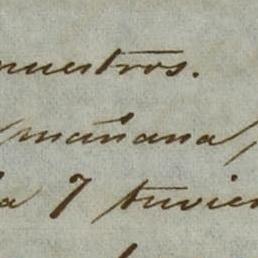 nuestros.
mañana,
a 7 tuvier